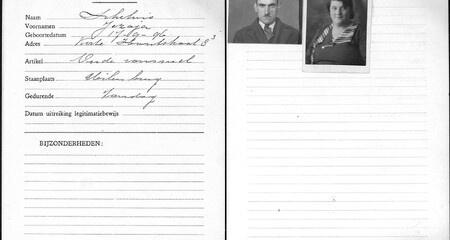 Naam Schelvis
Voornamen Jezaja
Geboortedatum 17-9-96
Adres Houtstraat 3³
Artikel Oude
Staanplaats Uilenburg
Gedurende Zondag
Datum uitreiking legitimatiebewijs
BIJZONDERHEDEN: